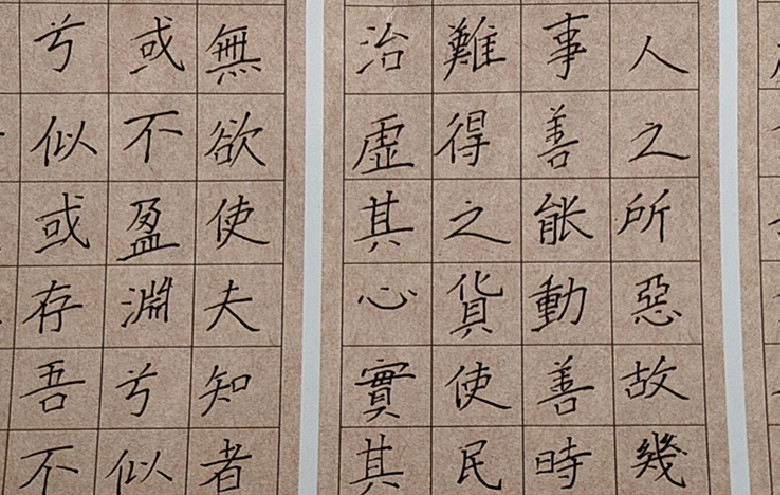 人之所惡故幾
事善能動善時
難得之貨使民
治虛其心實其
無欲使夫知者
或不盈淵兮似
兮似或存吾不